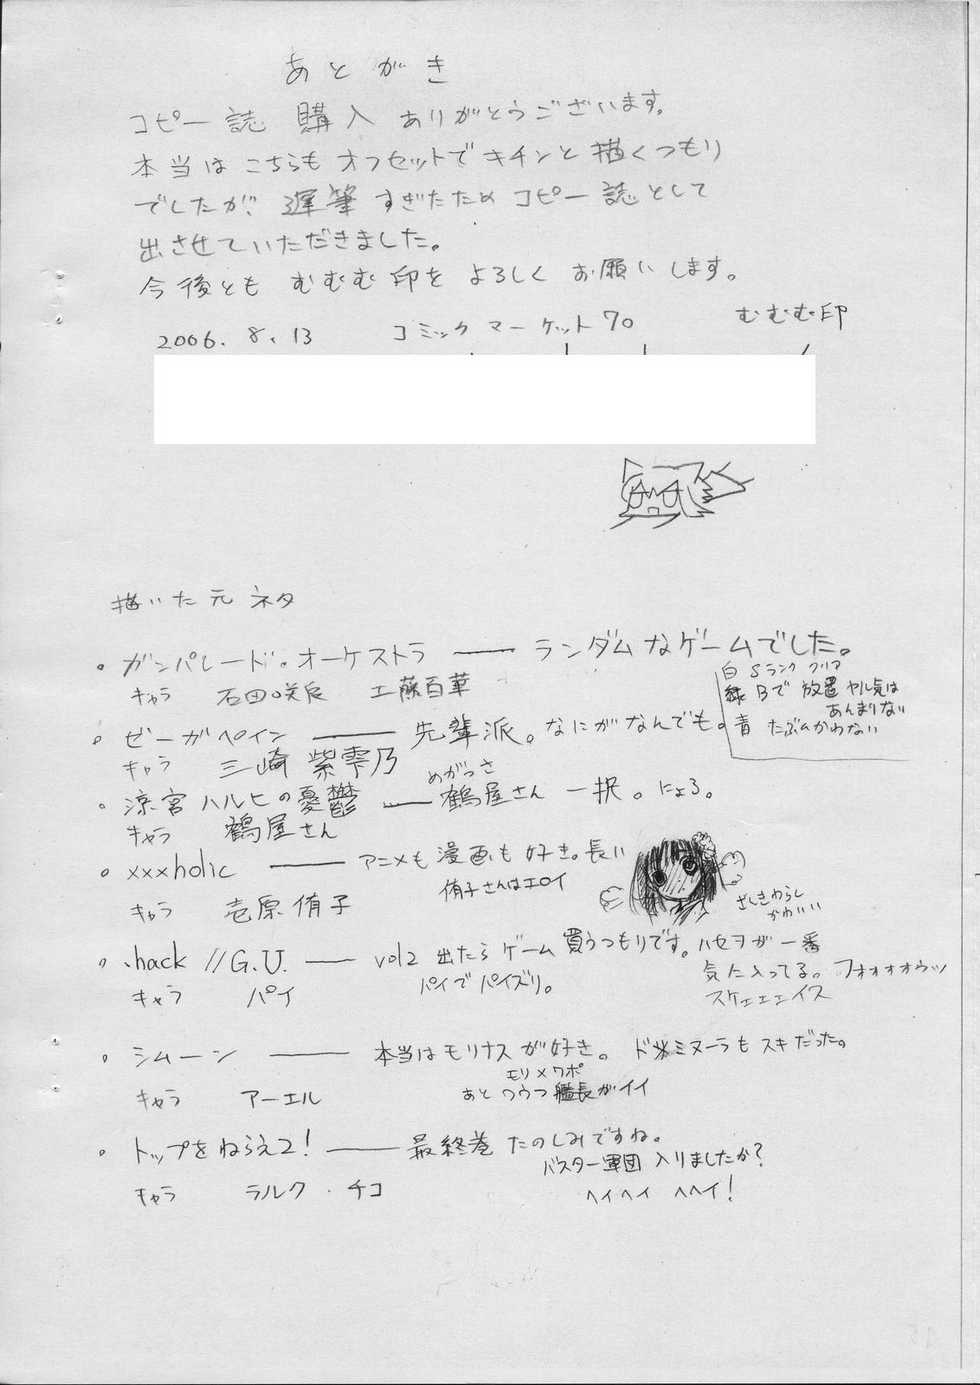 あとがき
コピー誌 購入 ありがとうございます。
本当は こちらも オフセットで キチンと 描くつもり
でしたが 遅筆 すぎたため コピー誌として
出させていただきました。
今後とも むむむ印を よろしく お願いします。
2006. 8. 13 コミックマーケット70 むむむ印
描いた元ネタ
。ガンパレード・オーケストラ —— ランダムなゲームでした。
白 Sランク クリア
緑 Bで 放置 ヤル気は
あんまりない
青 たぶんかわない
キャラ 石田咲良 工藤百華
。ゼーガペイン —— 先輩派。なにがなんでも。
キャラ 三崎 紫雫乃
。涼宮ハルヒの憂鬱 —— 鶴屋さん 一択。にょろ。
めがっさ
キャラ 鶴屋さん
。xxxholic —— アニメも 漫画も 好き。長い
侑子さんはエロイ
ざしきわらし
かわいい
キャラ 壱原侑子
。.hack //G.U. —— vol2 出たら ゲーム 買うつもりです。ハセヲが 一番
気に入ってる。フォォォォウッ
スケェェェイス
キャラ パイ パイで パイズリ。
。シムーン —— 本当は モリナス が 好き。 ドミヌーラも スキだった。
モリ×ワポ
キャラ アーエル あと ワウフ 艦長がイイ
。トップをねらえ2! —— 最終巻 たのしみですね。
バスター軍団 入りましたか?
キャラ ラルク・チコ ヘイヘイ ヘヘイ!